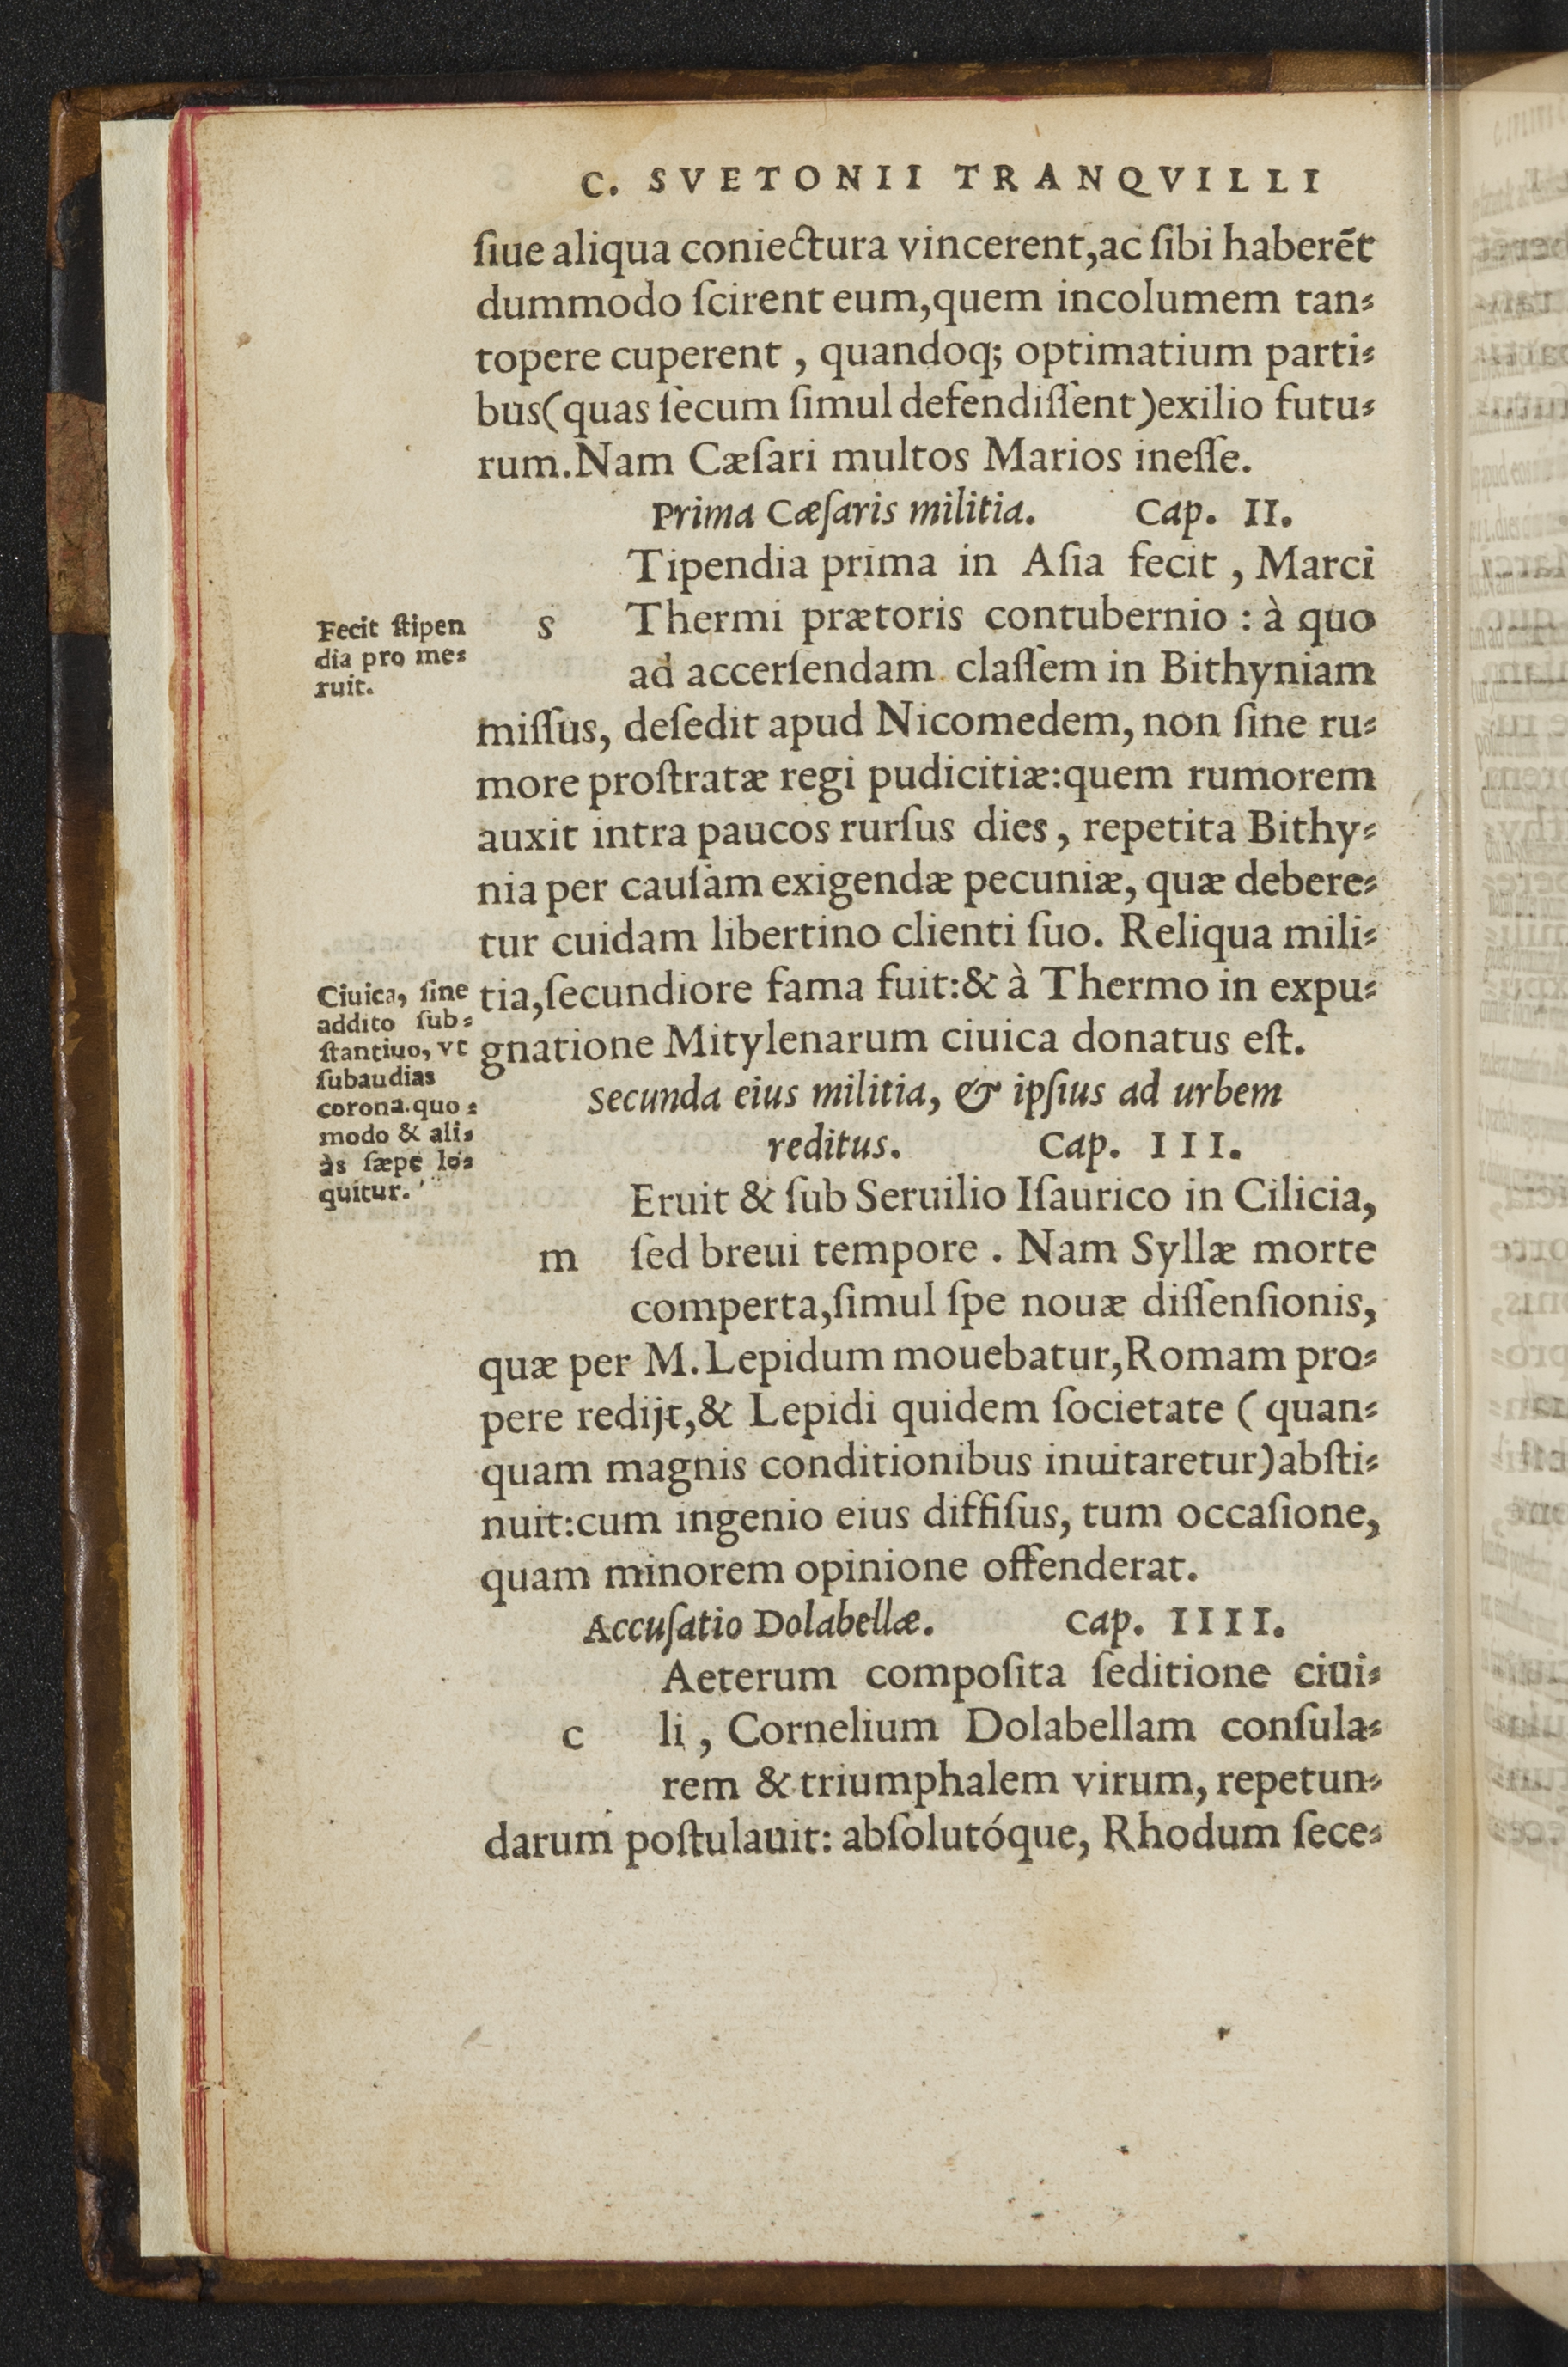 C. SVETONII TRANQVILLI
ſiue aliqua coniectura vincerent,ac ſibi haberẽt
dummodo ſcirent eum,quem incolumem tan⸗
topere cuperent , quandoq; optimatium parti⸗
bus(quas ſecum ſimul defendiſſent)exilio futu⸗
rum.Nam Cæſari multos Marios ineſſe.
Prima Cæſaris militia. Cap. II.
Tipendia prima in Aſia fecit , Marci
s Thermi prætoris contubernio : à quo
ad accerſendam claſſem in Bithyniam
miſſus, deſedit apud Nicomedem, non ſine ru⸗
more proſtratæ regi pudicitiæ:quem rumorem
auxit intra paucos rurſus dies , repetita Bithy⸗
nia per cauſam exigendæ pecuniæ, quæ debere⸗
tur cuidam libertino clienti ſuo. Reliqua mili⸗
tia,ſecundiore fama fuit:& à Thermo in expu⸗
gnatione Mitylenarum ciuica donatus eſt.
Secunda eius militia, & ipſius ad urbem
reditus. Cap. III.
Eruit & ſub Seruilio Iſaurico in Cilicia,
m ſed breui tempore . Nam Syllæ morte
comperta,ſimul ſpe nouæ diſſenſionis,
quæ per M.Lepidum mouebatur,Romam pro⸗
pere redijt,& Lepidi quidem ſocietate ( quan⸗
quam magnis conditionibus inuitaretur)abſti⸗
nuit:cum ingenio eius diffiſus, tum occaſione,
quam minorem opinione offenderat.
Accuſatio Dolabellæ. Cap. IIII.
Aeterum compoſita ſeditione ciui⸗
c li , Cornelium Dolabellam conſula⸗
rem & triumphalem virum, repetun⸗
darum poſtulauit: abſolutóque, Rhodum ſece⸗
Fecit ſtipen
dia pro me⸗
ruit.
Ciuica, ſine
addito ſub⸗
ſtantiuo, vt
ſubaudias
corona.quo⸗
modo & ali⸗
às ſæpe lo⸗
quitur.